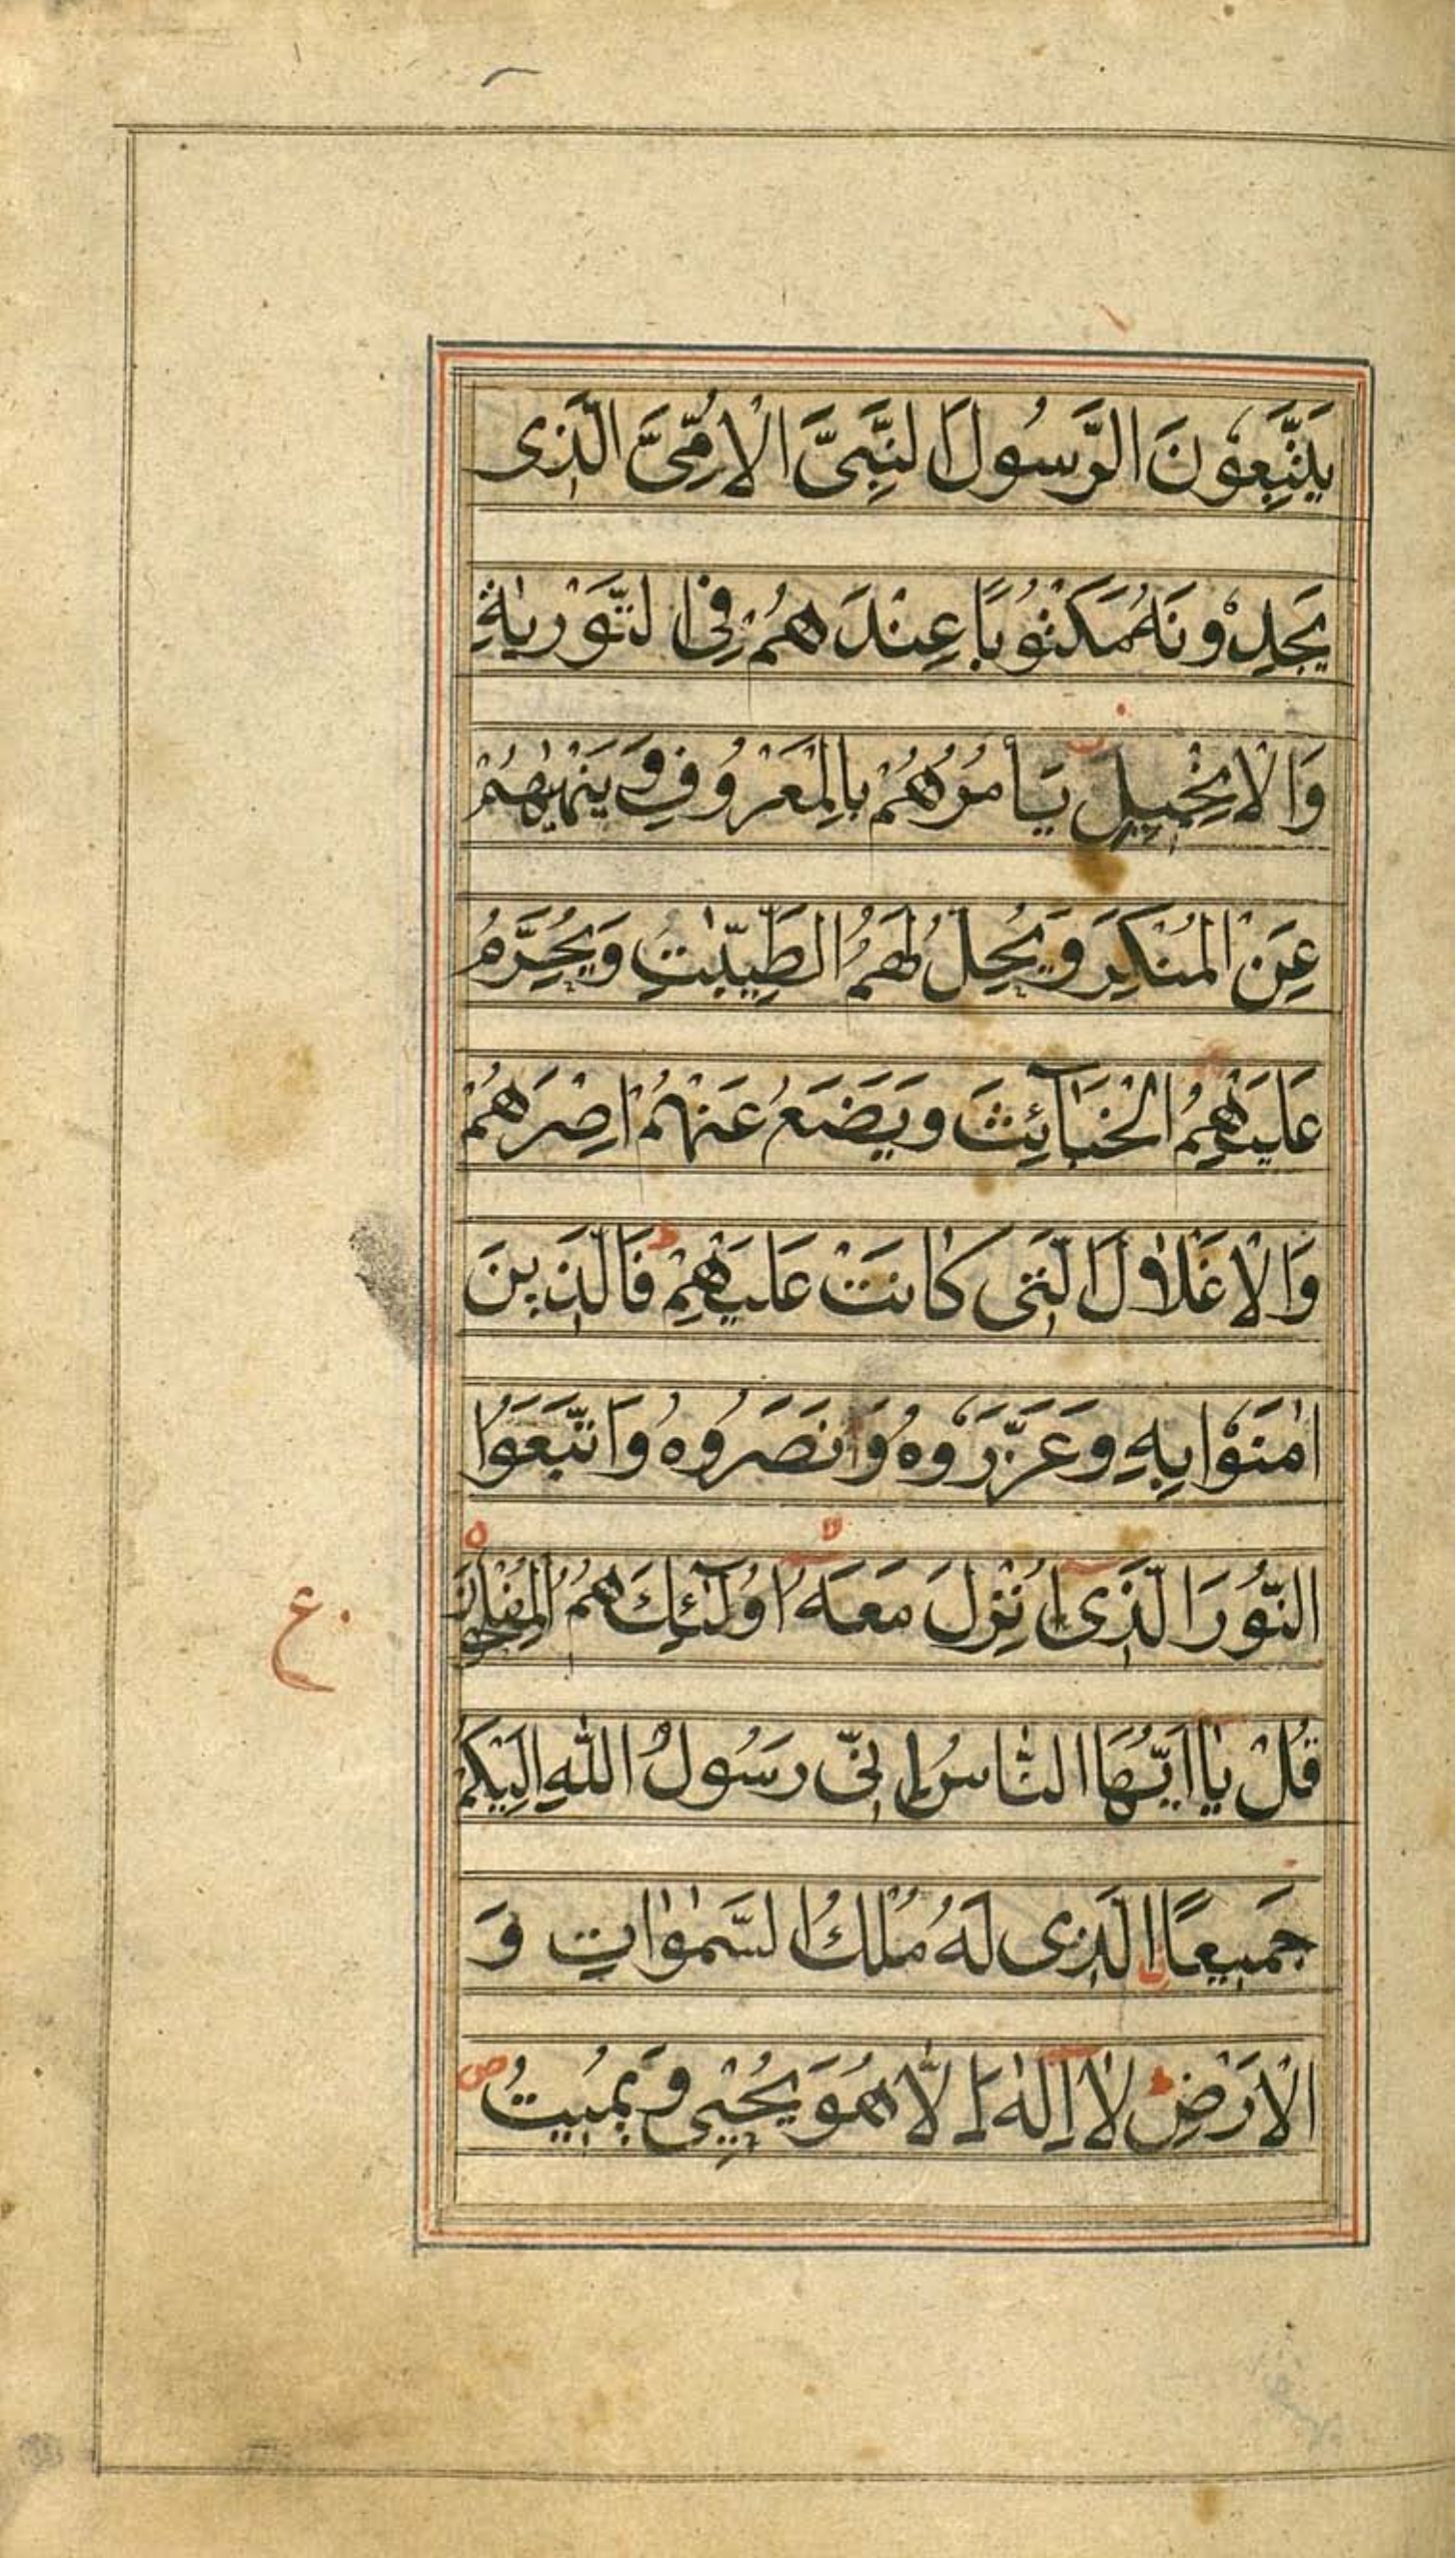 يَتَّبِعُوْنَ الرَّسُولَ النَّبِىَّ الْاُمِّىَّ الَّذِى
يَجِدُوْنَهُ مَكْتُوْبًا عِنْدَهُمْ فِى التَّوْرٰيةِ
وَالْاِنْجِيلِ يَأمُرُهُمْ بِالْمَعْرُوفِ وَيَنْهٰيهُمْ
عَنِ الْمُنْكَرِ وَيُحِلُّ لَهُمُ الطَّيِّبٰتِ وَيُحَرِّمُ
عَلَيْهِمُ الْخَبَآئِثَ وَيَضَعُ عَنْهُمْ اِصْرَهُمْ
وَالْاَغْلٰلَ الَّتِى كَانَتْ عَلَيْهِمْ فَالَّذِينَ
اٰمَنُوْا بِهِ وَعَزَّرُوْهُ وَنَصَرُوهُ وَاتَّبَعُوا
النُّورَ الَّذِى اُنْزِلَ مَعَهُ اُولٰٓئِكَ هُمُ الْمُفْلِحُونَ
ع
قُلْ يٰاَيُّهَا النَّاسُ اِنِّى رَسُولُ اللّٰهِ اِلَيْكُمْ
جَمِيعًا الَّذِى لَهُ مُلْكُ السَّمٰوٰاتِ وَ
الْاَرْضِ لٰا اِلٰهَ اِلَّا هُوَ يُحْيِى وَيُمِيتُ